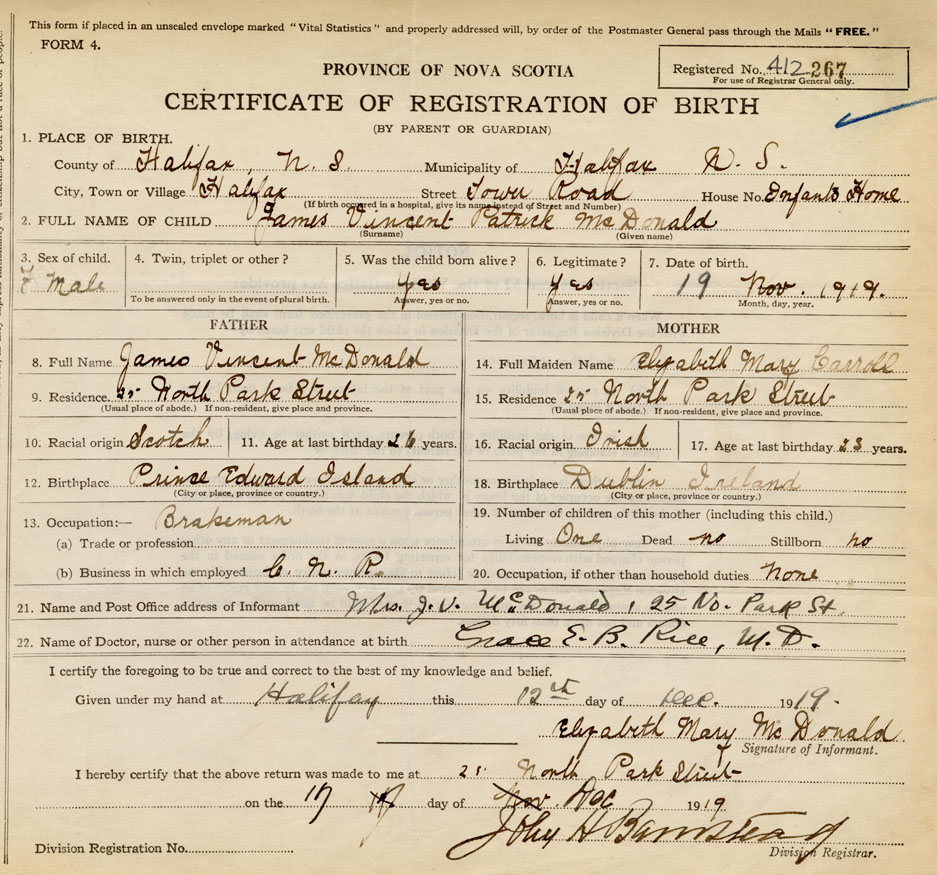 This form if placed in an unsealed envelope marked "Vital Statistics" and properly addressed will, by order of the Postmaster General pass through the Mails "FREE."
FORM 4.
Registered No. 412 267
For use of Registrar General only.
PROVINCE OF NOVA SCOTIA
CERTIFICATE OF REGISTRATION OF BIRTH
(BY PARENT OR GUARDIAN)
1. PLACE OF BIRTH.
County of Halifax, N. S. Municipality of Halifax N. S.
City, Town or Village Halifax Street Tower Road House No. Enfants Home
(If birth occurred in a hospital, give its name instead of Street and Number)
2. FULL NAME OF CHILD James Vincent Patrick McDonald
(Surname) (Given name)
3. Sex of child. 4. Twin, triplet or other? 5. Was the child born alive? 6. Legitimate? 7. Date of birth.
Male Yes Yes 19 Nov. 1919.
To be answered only in the event of plural birth. Answer, yes or no. Answer, yes or no. Month, day, year.
FATHER MOTHER
8. Full Name James Vincent McDonald 14. Full Maiden Name Elizabeth Mary Carroll
9. Residence. 25 North Park Street 15. Residence 25 North Park Street
(Usual place of abode.) If non-resident, give place and province. (Usual place of abode.) If non-resident, give place and province.
10. Racial origin Scotch 11. Age at last birthday 26 years. 16. Racial origin Irish 17. Age at last birthday 23 years.
12. Birthplace Prince Edward Island 18. Birthplace Dublin Ireland
(City or place, province or country.) (City or place, province or country.)
13. Occupation:— Brakeman 19. Number of children of this mother (including this child.)
(a) Trade or profession Living One Dead no Stillborn no
(b) Business in which employed C. N. R. 20. Occupation, if other than household duties None
21. Name and Post Office address of Informant Mrs. J. V. McDonald, 25 No. Park St.
22. Name of Doctor, nurse or other person in attendance at birth Grace E. B. Rice, M. D.
I certify the foregoing to be true and correct to the best of my knowledge and belief.
Given under my hand at Halifax this 12th day of Dec. 1919.
Elizabeth Mary McDonald
Signature of Informant.
I hereby certify that the above return was made to me at 25 North Park Street
on the 17 day of Nov. Dec 1919
John H Barnstead
Division Registration No. Division Registrar.